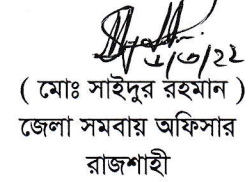 ১/৩/২২
( মোঃ সাইদুর রহমান )
জেলা সমবায় অফিসার
রাজশাহী